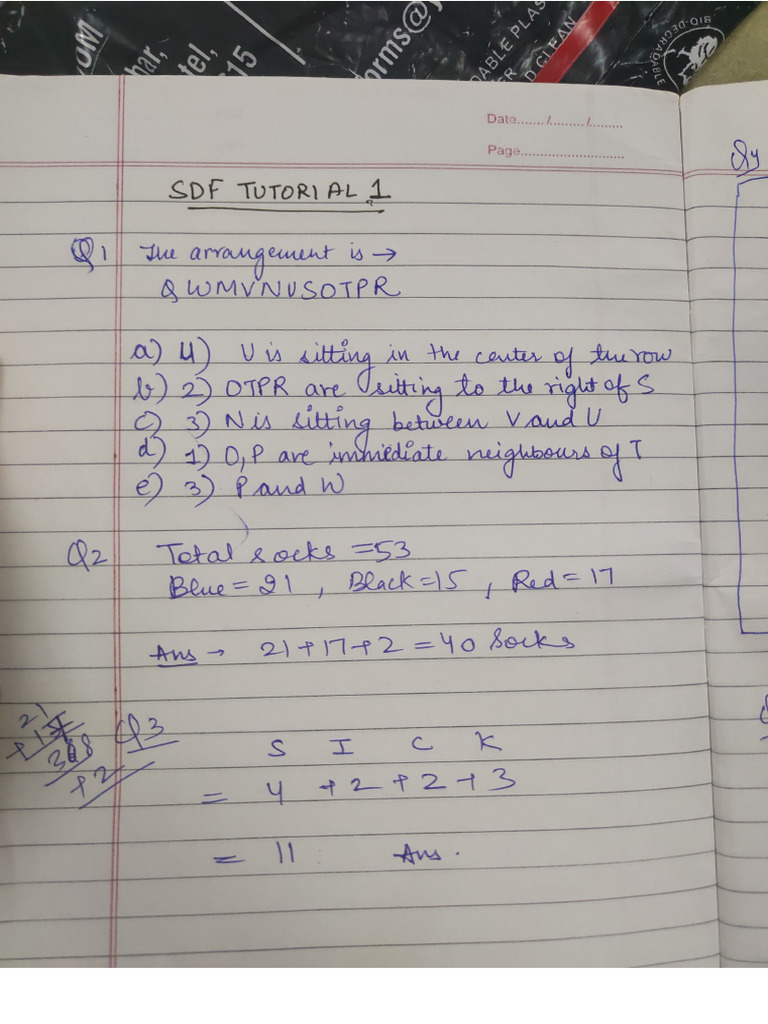 OM
har,
tel,
15
orms@
ABLE PLAS
D CLEAN
BIO-DEGRADABLE
Date......./........./.........
Page............................
SDF TUTORIAL 1
Q1 The arrangement is →
QWMVNUSOTPR
a) 4) U is sitting in the center of the row
b) 2) OTPR are sitting to the right of S
c) 3) N is sitting between V and U
d) 1) O,P are immediate neighbours of T
e) 3) P and W
Q2 Total socks = 53
Blue = 21 , Black = 15 , Red = 17
Ans → 21+17+2 = 40 Socks
21
+17
38
+2
Q3
S I C K
= 4 + 2 + 2 + 3
= 11 Ans .
Q4